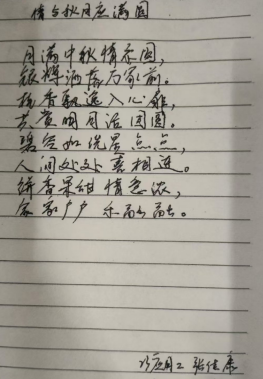 情与秋月应满圆
月满中秋情亦圆,
银辉洒落万家前。
桂香飘逸入心扉,
共赏明月话团圆。
碧空如洗星点点,
人间处处喜相逢。
饼香果甜情意浓,
家家户户乐融融。
张佳康